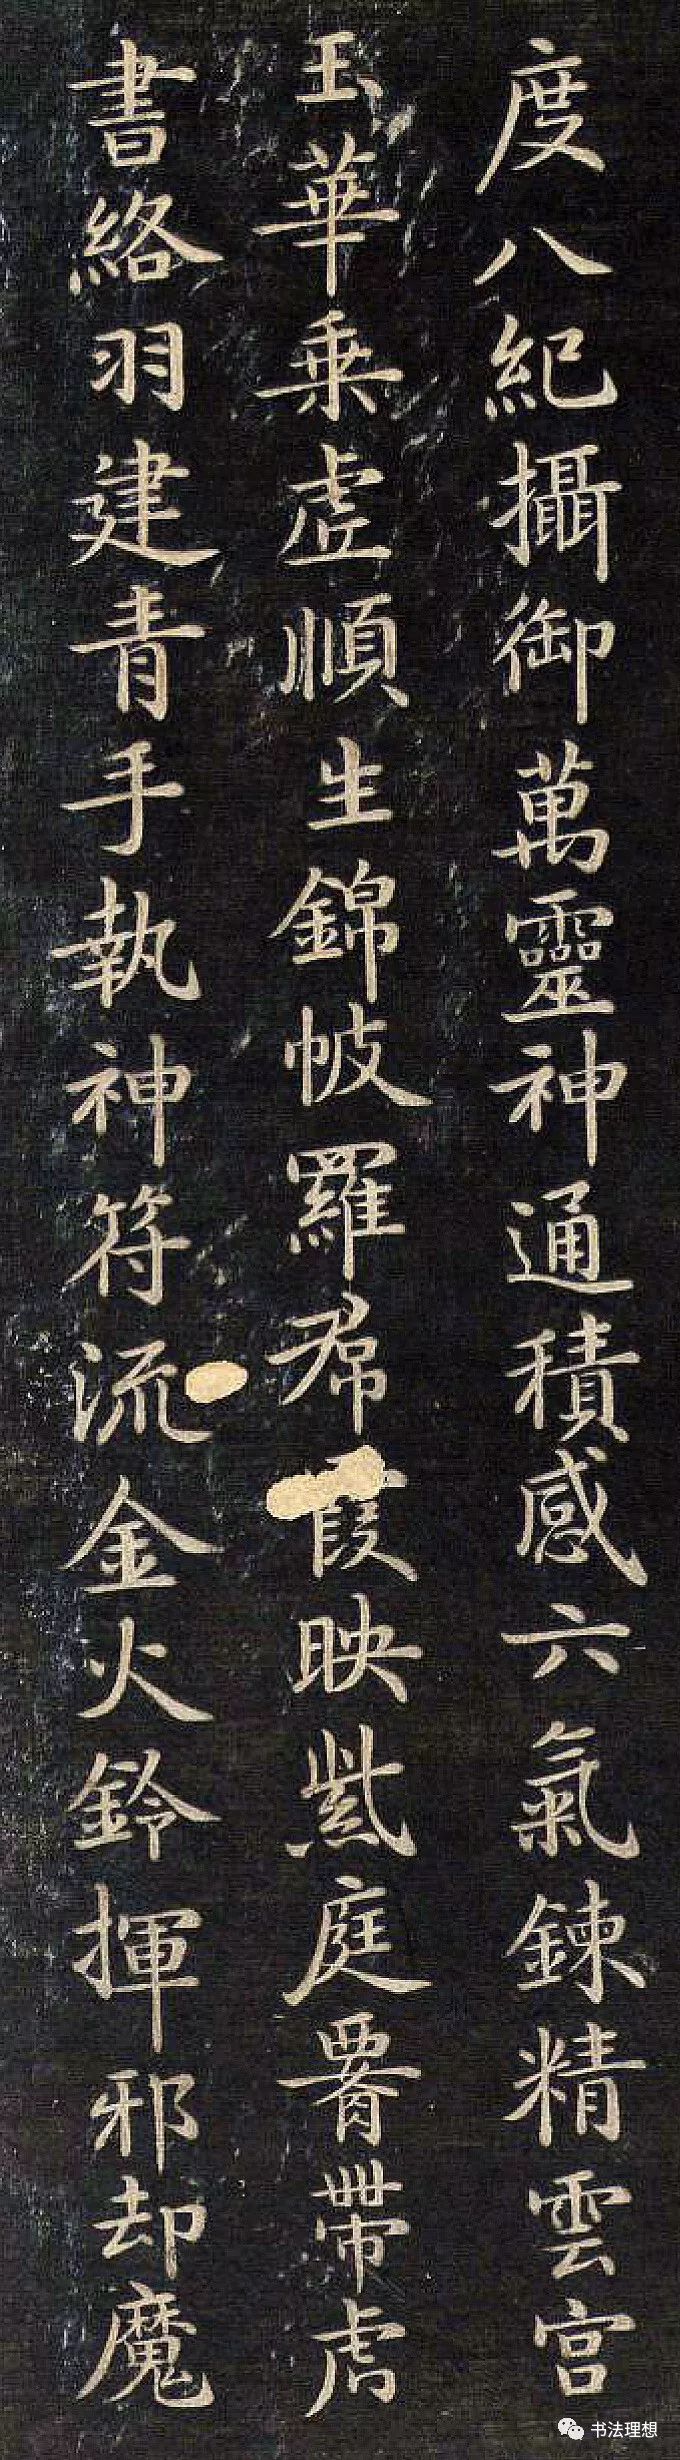 度八紀攝御萬靈神通積感六氣鍊精雲宮
玉華乗虛順生錦帔羅帬霞映紫庭腰帶虎
書絡羽建青手執神符流金火鈴揮邪却魔
书法理想